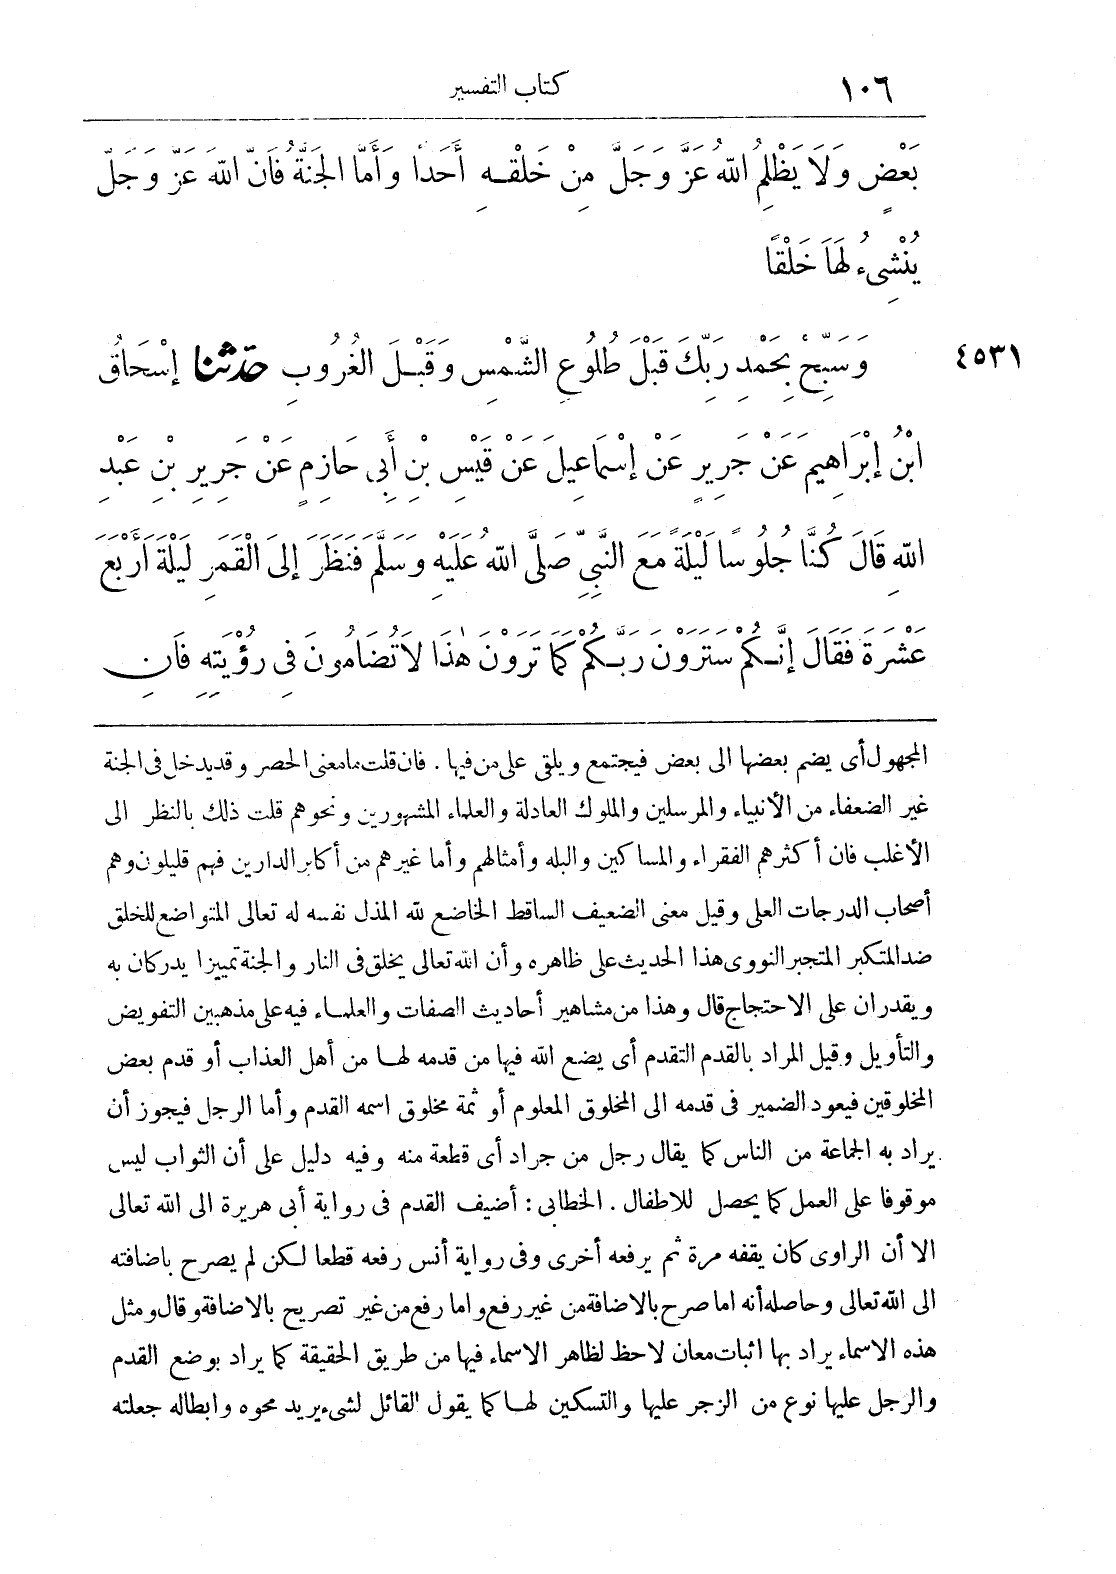 ١٠٦ كتاب التفسير
بَعْضٍ وَلَا يَظْلِمُ اللَّهُ عَزَّ وَجَلَّ مِنْ خَلْقِهِ أَحَدًا وَأَمَّا الْجَنَّةُ فَإِنَّ اللَّهَ عَزَّ وَجَلَّ
يُنْشِىءُ لَهَا خَلْقًا
٤٥٣١ وَسَبِّحْ بِحَمْدِ رَبِّكَ قَبْلَ طُلُوعِ الشَّمْسِ وَقَبْلَ الْغُرُوبِ حَدَّثَنَا إِسْحَاقُ
ابْنُ إِبْرَاهِيمَ عَنْ جَرِيرٍ عَنْ إِسْمَاعِيلَ عَنْ قَيْسِ بْنِ أَبِى حَازِمٍ عَنْ جَرِيرِ بْنِ عَبْدِ
اللَّهِ قَالَ كُنَّا جُلُوسًا لَيْلَةً مَعَ النَّبِىِّ صَلَّى اللَّهُ عَلَيْهِ وَسَلَّمَ فَنَظَرَ إِلَى الْقَمَرِ لَيْلَةَ أَرْبَعَ
عَشْرَةَ فَقَالَ إِنَّكُمْ سَتَرَوْنَ رَبَّكُمْ كَمَا تَرَوْنَ هٰذَا لَا تُضَامُونَ فِى رُؤْيَتِهِ فَإِنِ
المجهول أى يضم بعضها الى بعض فيجتمع ويلقى على من فيها . فان قلت ما معنى الحصر وقد يدخل فى الجنة
غير الضعفاء من الأنبياء والمرسلين والملوك العادلة والعلماء المشهورين ونحوهم قلت ذلك بالنظر الى
الأغلب فان أكثرهم الفقراء والمساكين والبله وأمثالهم وأما غيرهم من أكابر الدارين فهم قليلون وهم
أصحاب الدرجات العلى وقيل معنى الضعيف الساقط الخاضع لله المذل نفسه له تعالى المتواضع للخلق
ضد المتكبر المتجبر النووى هذا الحديث على ظاهره وأن الله تعالى يخلق فى النار والجنة تمييزا يدركان به
ويقدران على الاحتجاج قال وهذا من مشاهير أحاديث الصفات والعلماء فيه على مذهبين التفويض
والتأويل وقيل المراد بالقدم التقدم أى يضع الله فيها من قدمه لها من أهل العذاب أو قدم بعض
المخلوقين فيعود الضمير فى قدمه الى المخلوق المعلوم أو ثمة مخلوق اسمه القدم وأما الرجل فيجوز أن
يراد به الجماعة من الناس كما يقال رجل من جراد أى قطعة منه وفيه دليل على أن الثواب ليس
موقوفا على العمل كما يحصل للاطفال . الخطابى : أضيف القدم فى رواية أبى هريرة الى الله تعالى
الا أن الراوى كان يقفه مرة ثم يرفعه أخرى وفى رواية أنس رفعه قطعا لكن لم يصرح باضافته
الى الله تعالى وحاصله أنه اما صرح بالاضافة من غير رفع واما رفع من غير تصريح بالاضافة وقال ومثل
هذه الاسماء يراد بها اثبات معان لاحظ لظاهر الاسماء فيها من طريق الحقيقة كما يراد بوضع القدم
والرجل عليها نوع من الزجر عليها والتسكين لها كما يقول القائل لشىء يريد محوه وابطاله جعلته